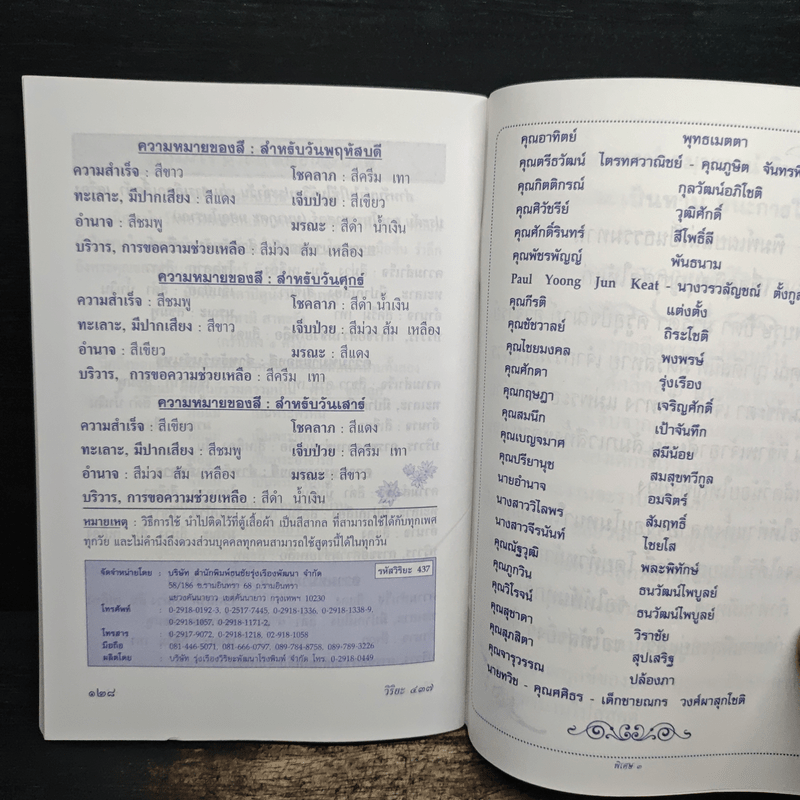 ความหมายของสี : สำหรับวันพฤหัสบดี
ความสำเร็จ : สีขาว โชคลาภ : สีครีม เทา
ทะเลาะ, มีปากเสียง : สีแดง เจ็บป่วย : สีเขียว
อำนาจ : สีชมพู มรณะ : สีดำ น้ำเงิน
บริวาร, การขอความช่วยเหลือ : สีม่วง ส้ม เหลือง
ความหมายของสี : สำหรับวันศุกร์
ความสำเร็จ : สีชมพู โชคลาภ : สีดำ น้ำเงิน
ทะเลาะ, มีปากเสียง : สีขาว เจ็บป่วย : สีม่วง ส้ม เหลือง
อำนาจ : สีเขียว มรณะ : สีแดง
บริวาร, การขอความช่วยเหลือ : สีครีม เทา
ความหมายของสี : สำหรับวันเสาร์
ความสำเร็จ : สีเขียว โชคลาภ : สีแดง
ทะเลาะ, มีปากเสียง : สีชมพู เจ็บป่วย : สีครีม เทา
อำนาจ : สีม่วง ส้ม เหลือง มรณะ : สีขาว
บริวาร, การขอความช่วยเหลือ : สีดำ น้ำเงิน
หมายเหตุ : วิธีการใช้ นำไปติดไว้ที่ตู้เสื้อผ้า เป็นสีสากล ที่สามารถใช้ได้กับทุกเพศ
ทุกวัย และไม่คำนึงถึงดวงส่วนบุคคลทุกคนสามารถใช้สูตรนี้ได้ในทุกวัน
จัดจำหน่ายโดย : บริษัท สำนักพิมพ์ธนชัยรุ่งเรืองพัฒนา จำกัด รหัสวิริยะ 437
58/186 ซ.รามอินทรา 68 ถ.รามอินทรา
แขวงคันนายาว เขตคันนายาว กรุงเทพฯ 10230
โทรศัพท์ : 0-2918-0192-3, 0-2517-7445, 0-2918-1336, 0-2918-1338-9,
0-2918-1057, 0-2918-1171-2,
โทรสาร : 0-2917-9072, 0-2918-1218, 02-918-1058
มือถือ : 081-446-5071, 081-666-0797, 089-784-8758, 089-789-3226
ผลิตโดย : บริษัท รุ่งเรืองวิริยะพัฒนาโรงพิมพ์ จำกัด โทร. 0-2918-0449
๑๒๘ วิริยะ ๔๓๗
คุณอาทิตย์ พุทธเมตตา
คุณตรีธวัฒน์ ไตรทศวาณิชย์ - คุณภูษิต
คุณกิตติกรณ์ กุลวัฒน์อภิโชติ
คุณศิวัชรีย์ วุฒิศักดิ์
คุณศักดิ์รินทร์ สีโพธิ์ลี
คุณพัชรพัญญ์ พันธนาม
Paul Yoong Jun Keat - นางวรวลัญชณ์
คุณกีรติ แต่งตั้ง
คุณชัชวาลย์ ถิระโชติ
คุณไชยมงคล พงพรษ์
คุณศักดา รุ่งเรือง
คุณกฤษฎา เจริญศักดิ์
คุณสมนึก เป้าจันทึก
คุณเบญจมาศ สมีน้อย
คุณปรียานุช สมสุขทวีกูล
นายอำนาจ อมจิตร์
นางสาววิไลพร สัมฤทธิ์
นางสาวจีรนันท์ ไชยโส
คุณณัฐวุฒิ พละพิทักษ์
คุณภูกวิน ธนวัฒน์ไพบูลย์
คุณวิโรจน์ ธนวัฒน์ไพบูลย์
คุณสุชาดา วิราชัย
คุณสุภสิตา สุปเสริฐ
คุณจารุวรรณ ปล้องภา
นายทวิช - คุณศศิธร - เด็กชายณกร วงศ์ผาสุกโชติ
พิเศษ ๓